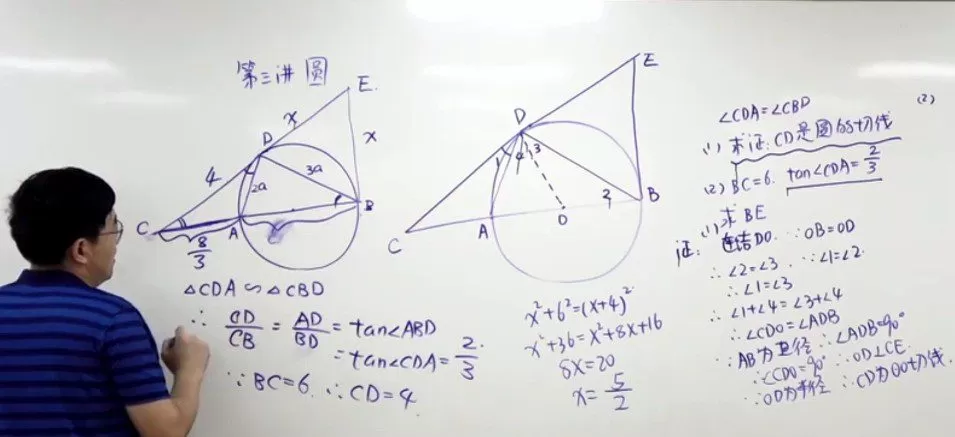 第三讲 圆
E
x
x
D
4
2a
3a
C
A
B
8/3
△CDA∽△CBD
∴ CD/CB = AD/BD = tan∠ABD
= tan∠CDA = 2/3
∵BC=6 ∴CD=4
E
D
1
4
3
2
B
O
A
C
x²+6²=(x+4)²
x²+36=x²+8x+16
8x=20
x=5/2
∠CDA=∠CBD
(2)
(1) 求证:CD是圆的切线
(2) BC=6. tan∠CDA=2/3
求BE
证: (1) 连结DO ∵OB=OD
∴∠2=∠3 ∵∠1=∠2
∴∠1=∠3
∴∠1+∠4=∠3+∠4
∴∠CDO=∠ADB
∵AB为直径 ∴∠ADB=90°
∴∠CDO=90° ∴OD⊥CE
∵OD为半径 ∴CD为⊙O切线